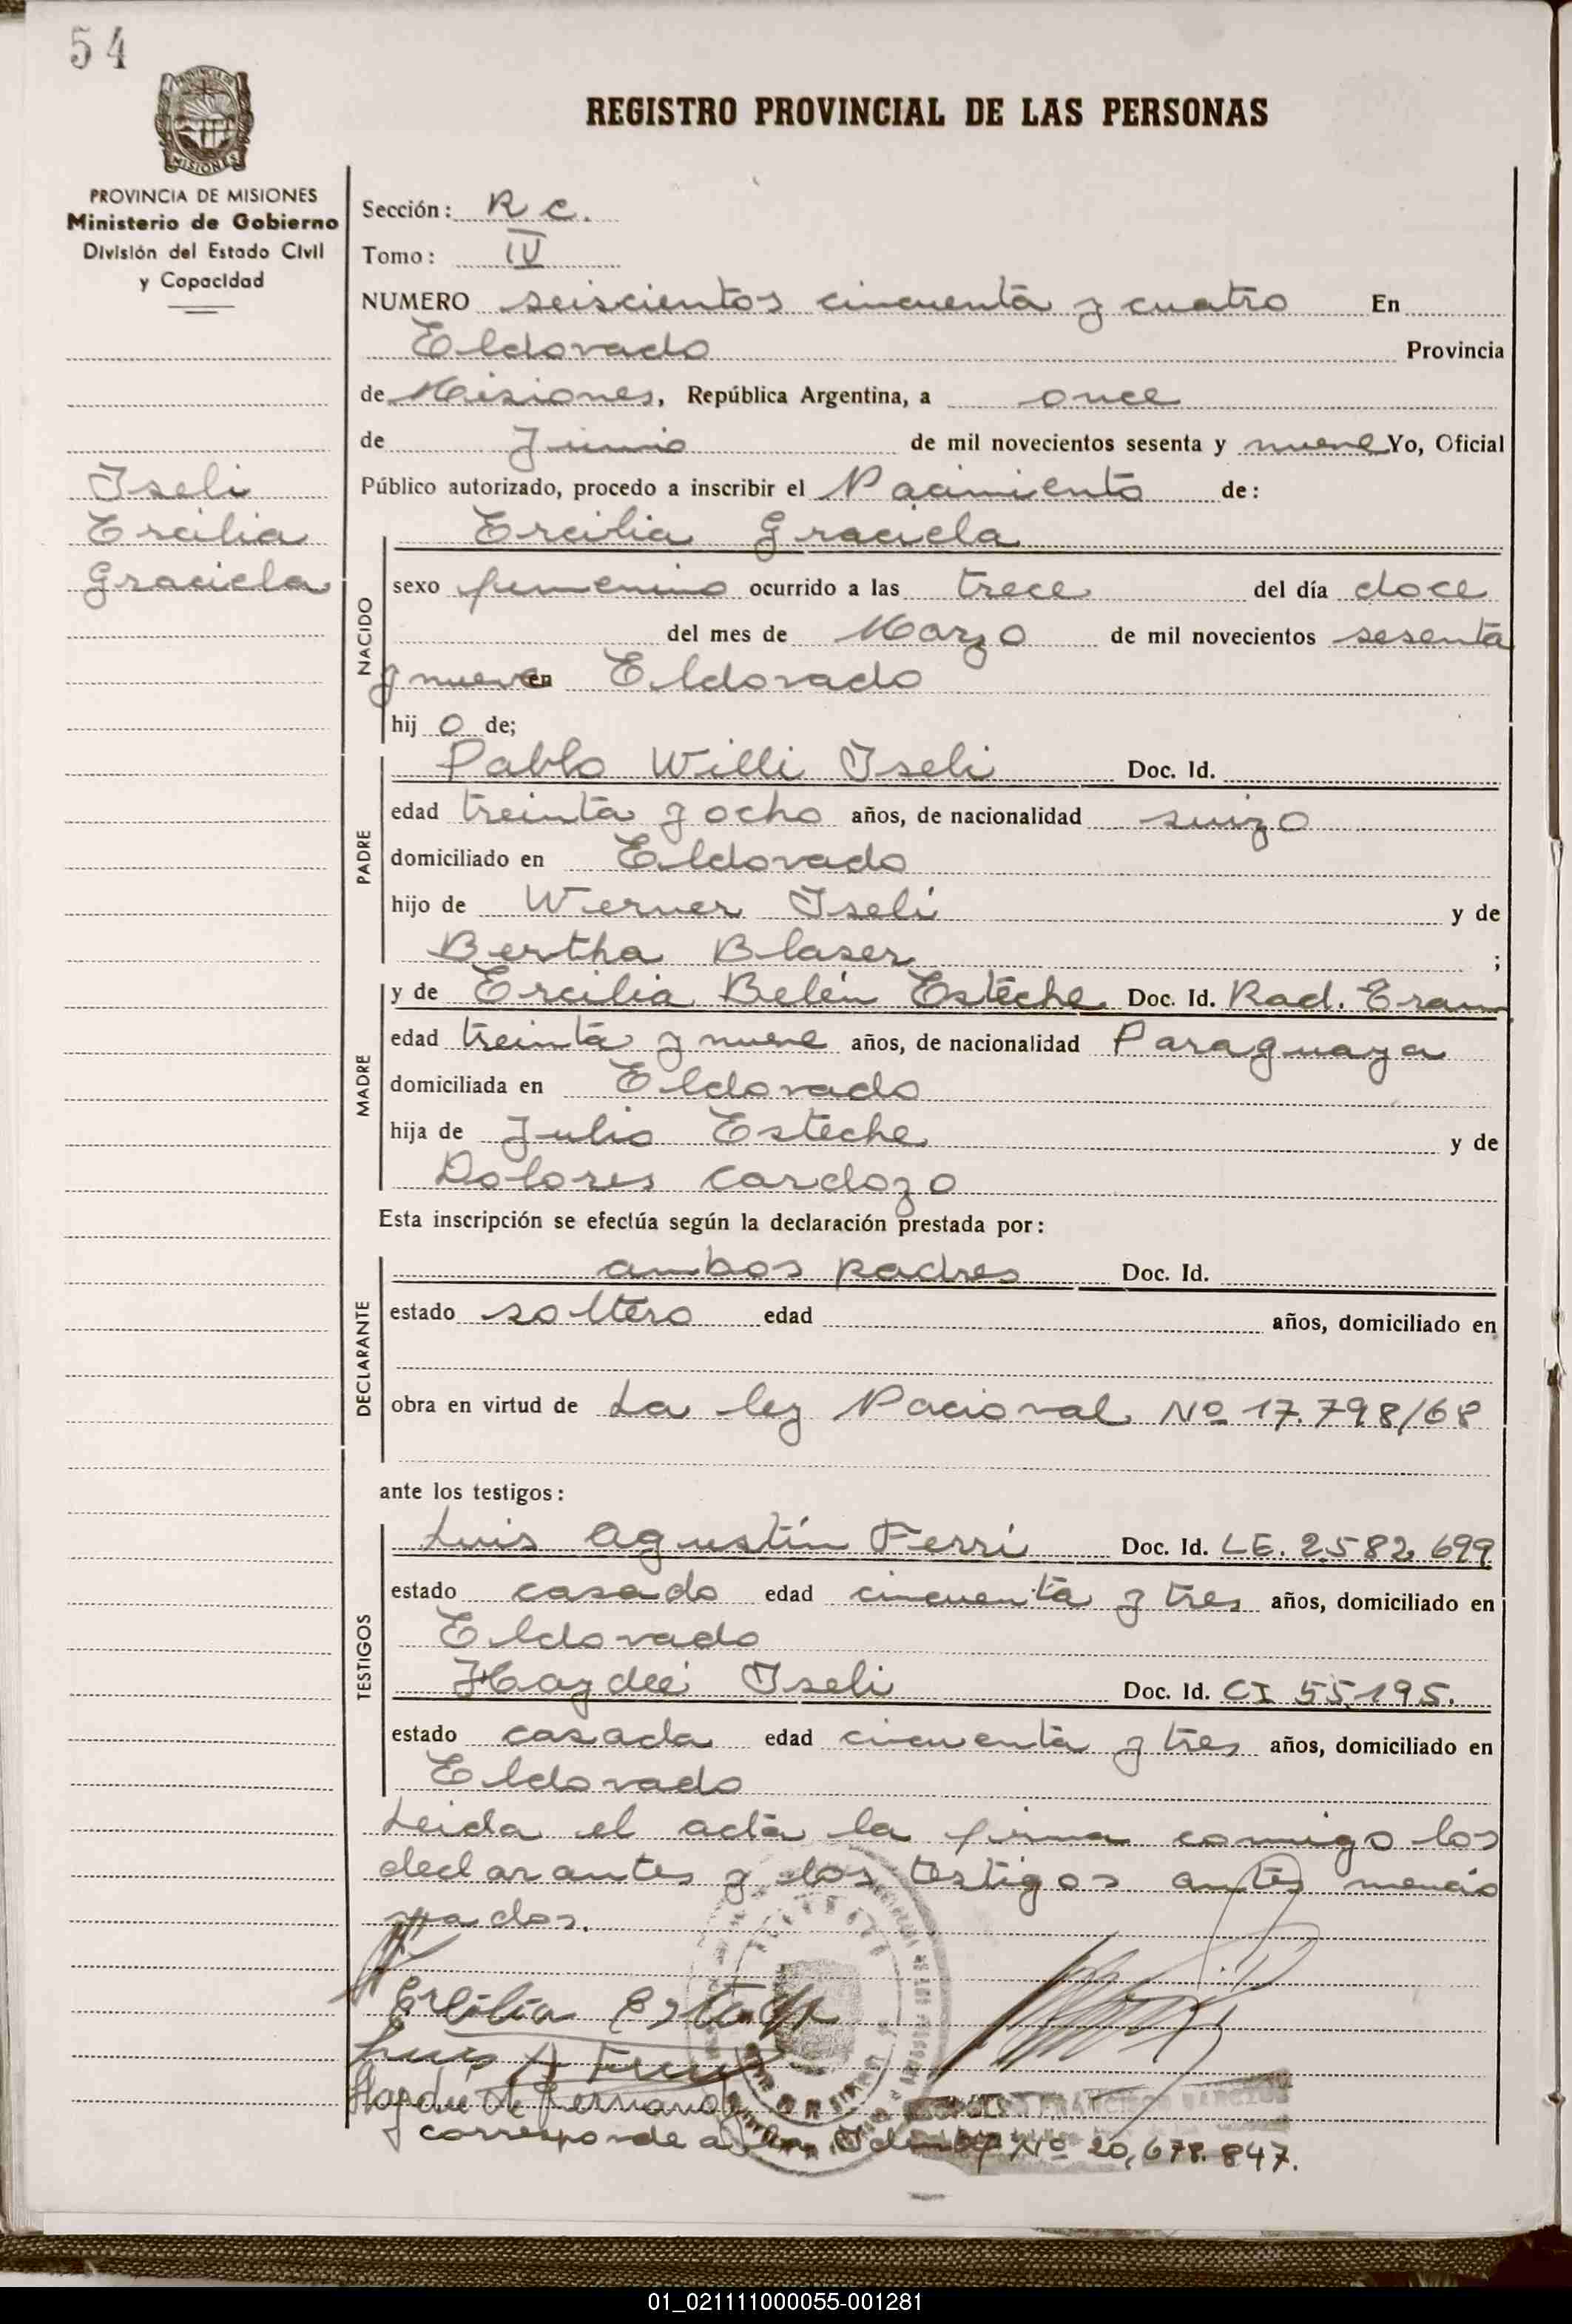 54
REGISTRO PROVINCIAL DE LAS PERSONAS
MISIONES
PROVINCIA DE MISIONES
Ministerio de Gobierno
División del Estado Civil
y Capacidad
Sección: R C.
Tomo: IV
NUMERO seiscientos cincuenta y cuatro En
Eldorado Provincia
de Misiones, República Argentina, a once
de Junio de mil novecientos sesenta y nueve Yo, Oficial
Público autorizado, procedo a inscribir el Nacimiento de:
Iseli
Ercilia
Graciela
NACIDO
Ercilia Graciela
sexo femenino ocurrido a las trece del día doce
del mes de Marzo de mil novecientos sesenta
y nueve en Eldorado
hij o de;
PADRE
Pablo Willi Iseli Doc. Id.
edad treinta y ocho años, de nacionalidad suizo
domiciliado en Eldorado
hijo de Werner Iseli y de
Bertha Blaser ;
MADRE
y de Ercilia Belén Esteche Doc. Id. Rad. Eram
edad treinta y nueve años, de nacionalidad Paraguaya
domiciliada en Eldorado
hija de Julio Esteche y de
Dolores Cardozo
Esta inscripción se efectúa según la declaración prestada por:
DECLARANTE
ambos padres Doc. Id.
estado soltero edad años, domiciliado en
obra en virtud de La ley Nacional Nº 17.798/68
ante los testigos:
TESTIGOS
Luis Agustín Ferri Doc. Id. LE. 2.582.699
estado casado edad cincuenta y tres años, domiciliado en
Eldorado
Haydeé Iseli Doc. Id. CI 55.195.
estado casada edad cincuenta y tres años, domiciliado en
Eldorado
Leida el acta la firma comigo los
declarantes y los testigos antes mencio
nados.
Ercilia Esteche
Luis A Ferri
corresponde a la Nº 20,678.847.
01_021111000055-001281